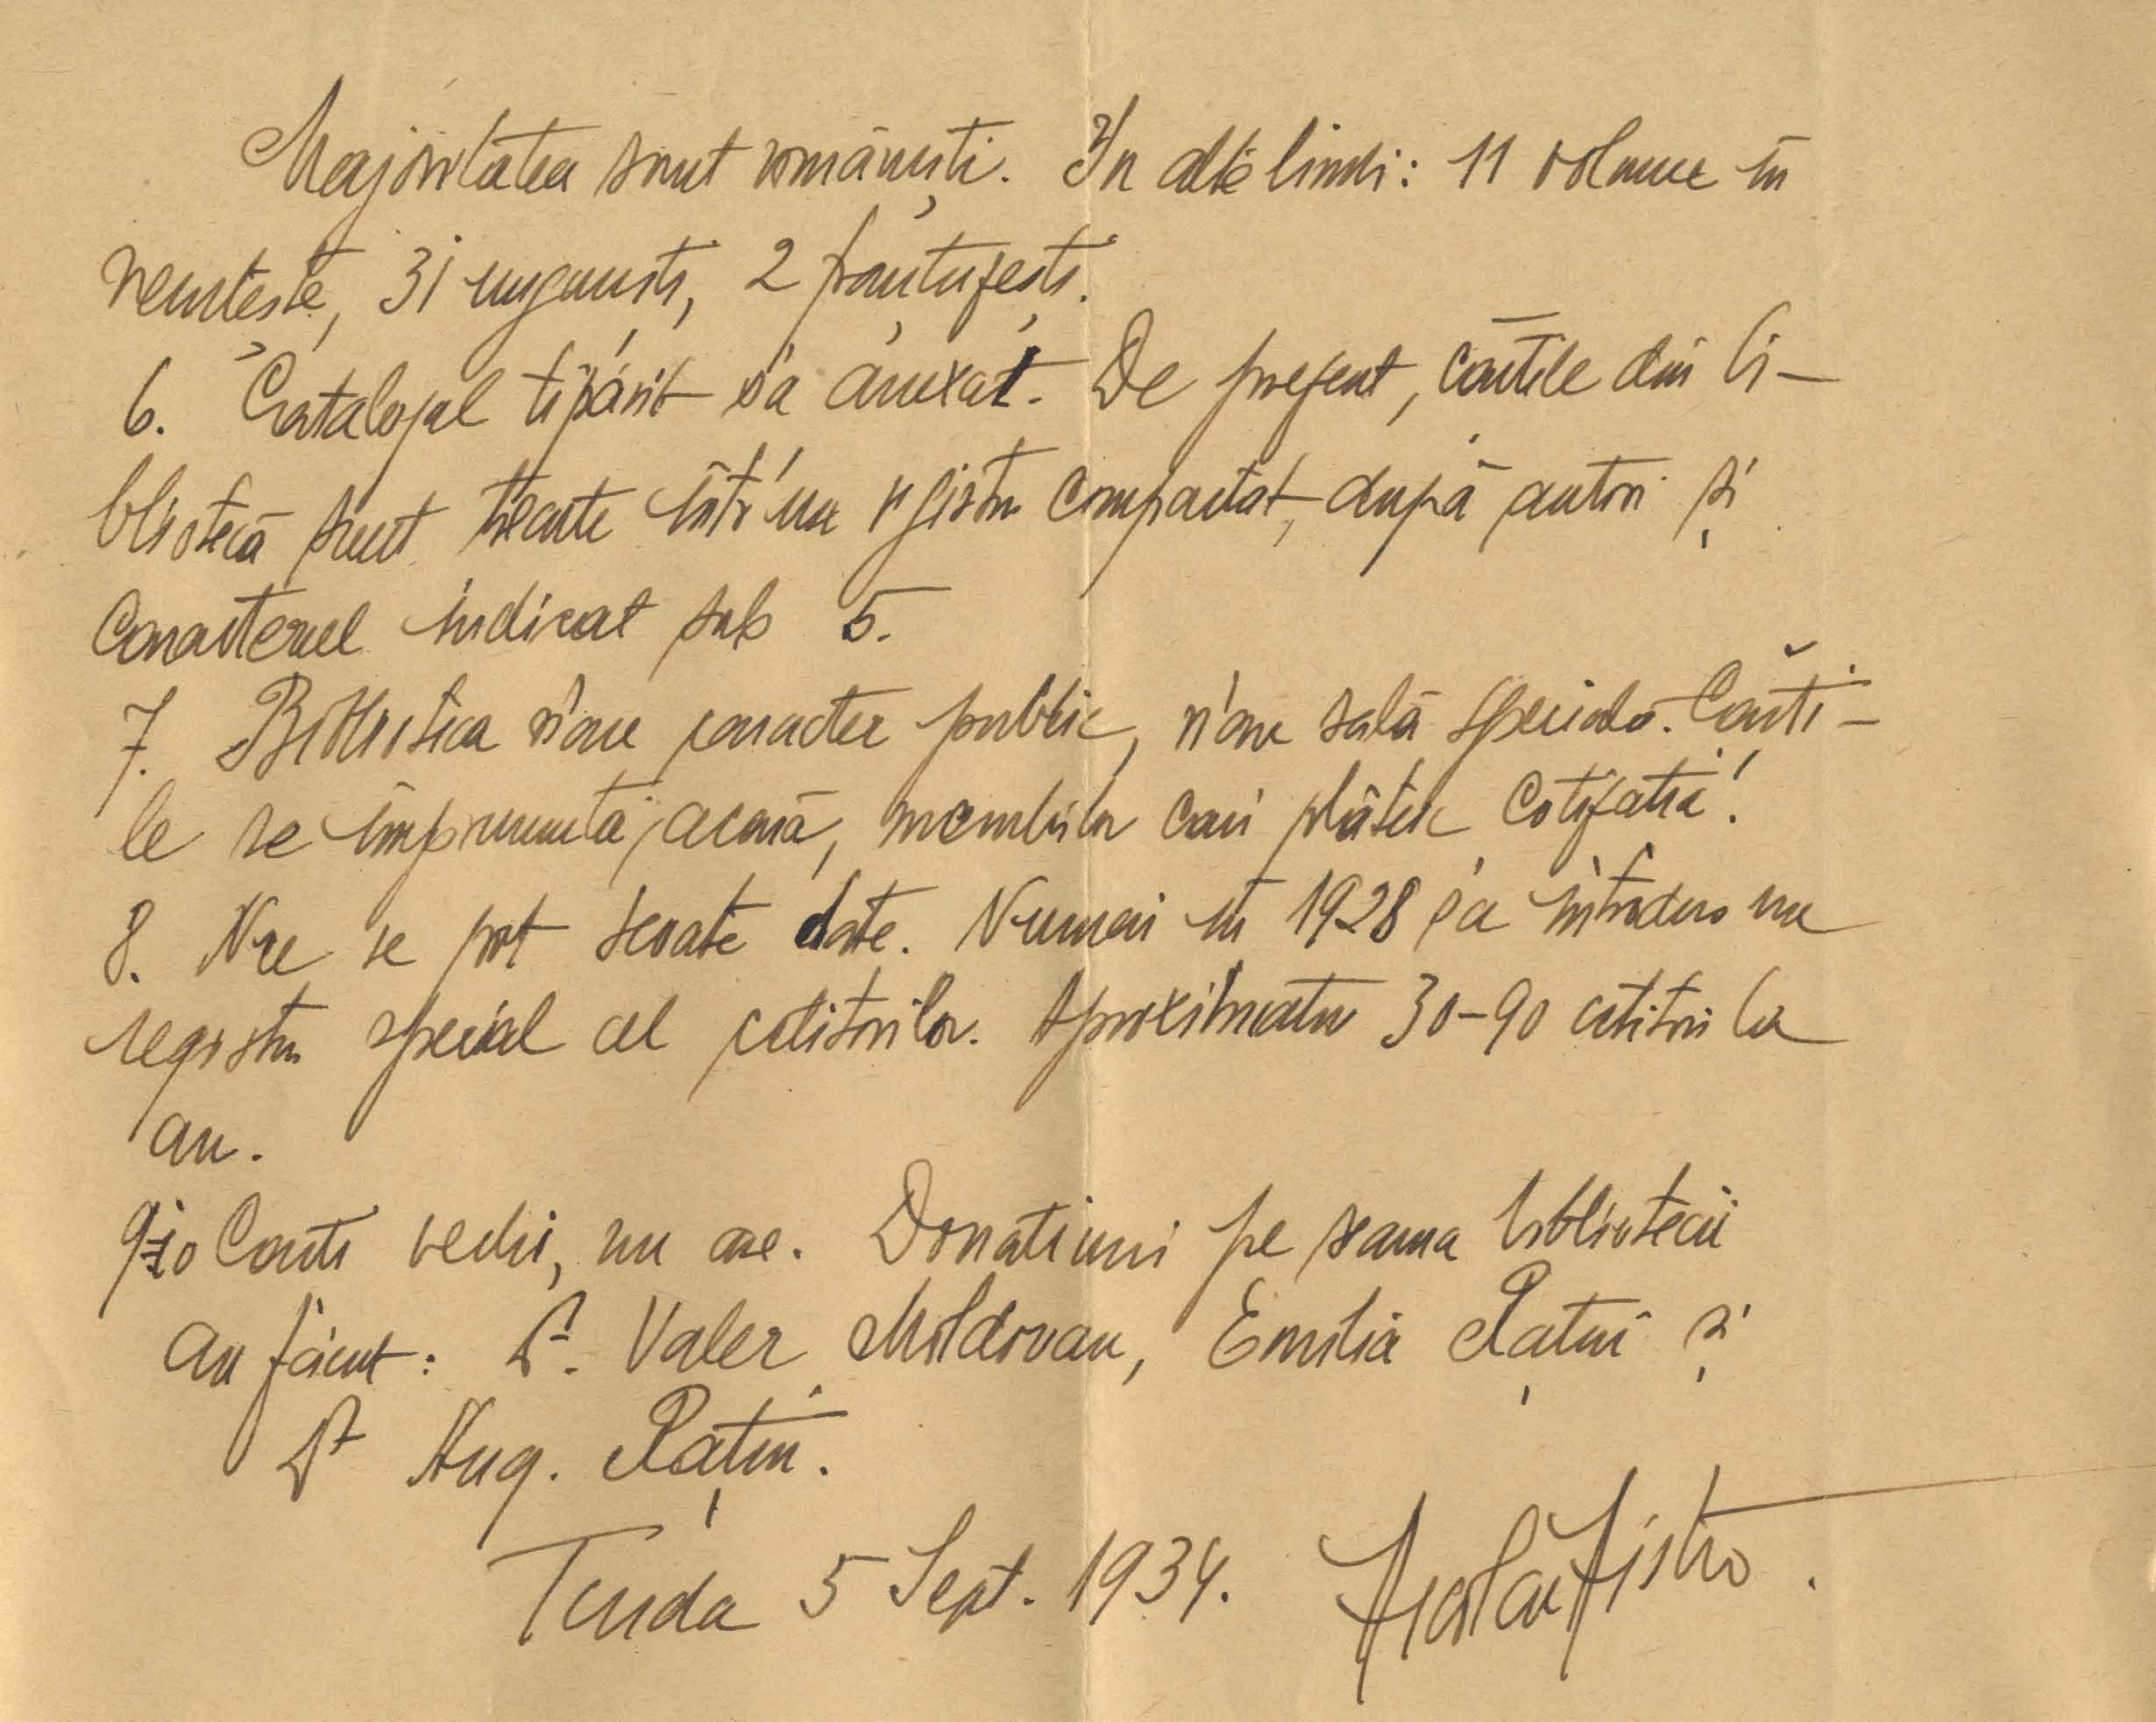 Majoritatea sunt românești. In alte limbi: 11 volume în
nemțește, 31 ungurești, 2 franțuzești.
6. Catalogul tipărit s'a anexat. De prezent, cărțile din bi-
bliotecă sunt trecute într'un registru compactat, după autori și
caracterul indicat sub 5.
7. Biblioteca n'are caracter public, n'are sală specială. Cărți-
le se împrumută, acasă, membrilor cari plătesc cotizația!
8. Nu se pot scoate date. Numai în 1928 s'a introdus un
registru special al cetitorilor. Aproximativ 30-90 cetitori la
an.
9-10 Cărți vechi, nu are. Donațiuni pe seama bibliotecii
au făcut: Dr. Valer Moldovan, Emilia Rațiu și
Dr Aug. Rațiu.
Turda 5 Sept. 1934.